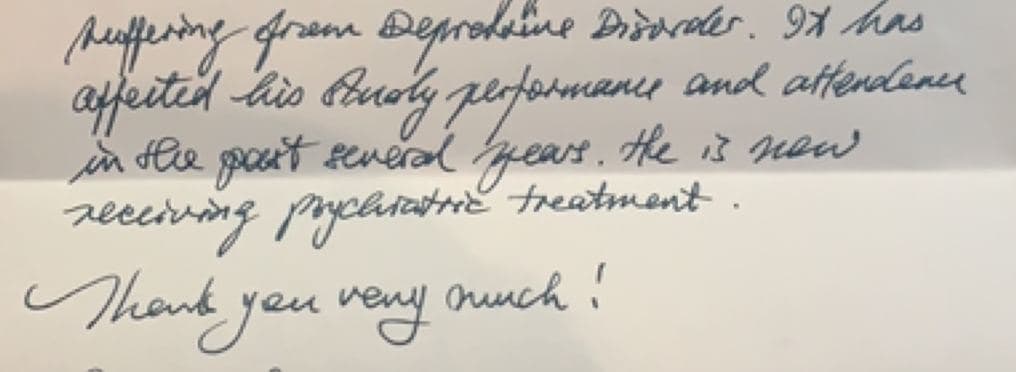 suffering from Depressive Disorder. It has
affected his study performance and attendance
in the past several years. He is now
receiving psychiatric treatment.
Thank you very much!